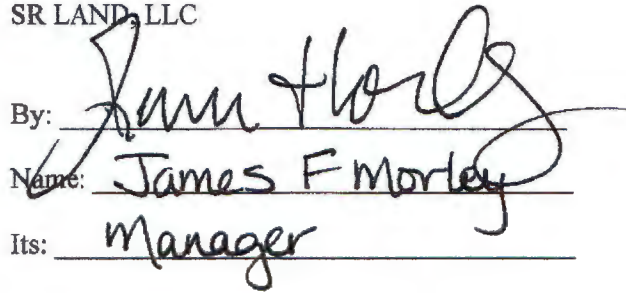 SR LAND, LLC
By:
Name: James F Morley
Its: Manager